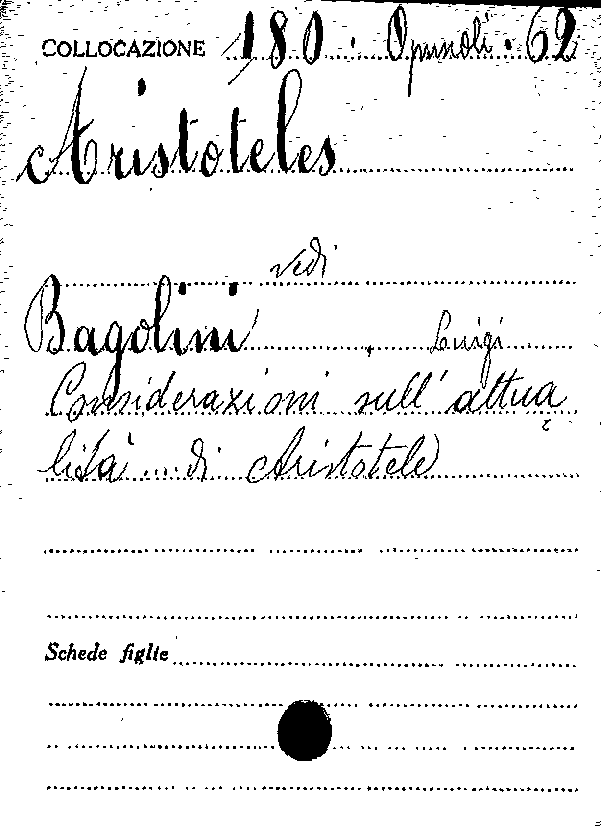 COLLOCAZIONE 180. Opuscoli. 62
Aristoteles
vedi
Bagolini, Luigi
Considerazioni sull'attua
lità .... di Aristotele
Schede figlie